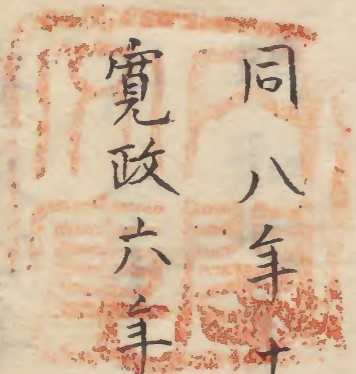 同八年十
寛政六年